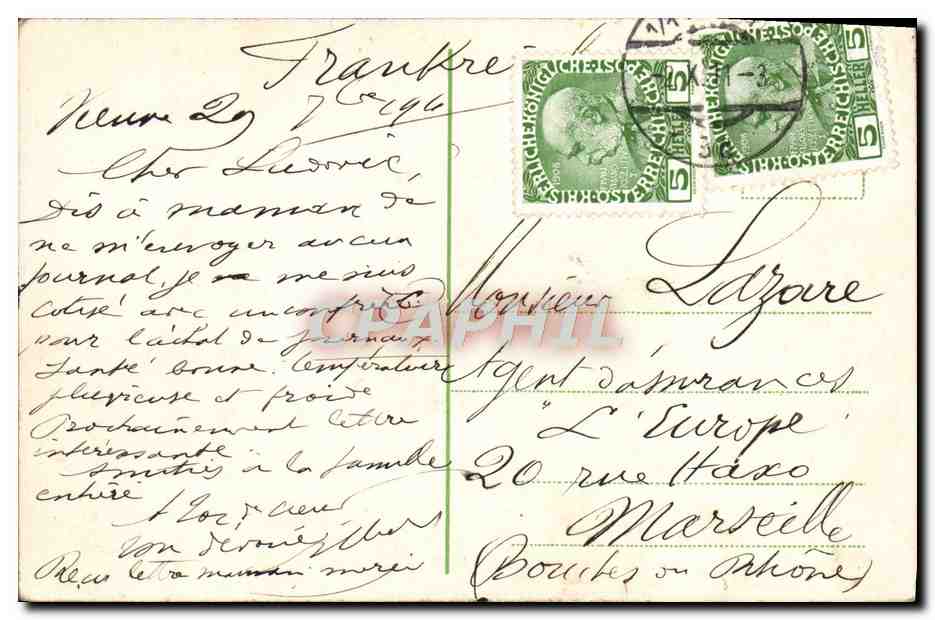 Frankré
Vienne 29 7bre 191
Cher Ludovic,
Dis à maman de
ne m'envoyer aucun
journal, je me suis
cotisé avec un confrère
pour l'achat de journaux
Santé bonne. Température
pluvieuse et froide
Prochainement lettre
intéressante
Amitiés à la famille
entière
A toi de cœur
ton dévoué
Reçu lettre maman merci
Monsieur Lazare
Agent d'assurances
"L'Europe"
20 rue Haxo
Marseille
(Bouches du Rhône)
K·K·ÖSTERREICHISCHE POST
5 HELLER 5
1848 1908
K·K·ÖSTERREICHISCHE POST
5 HELLER 5
CPAPHIL